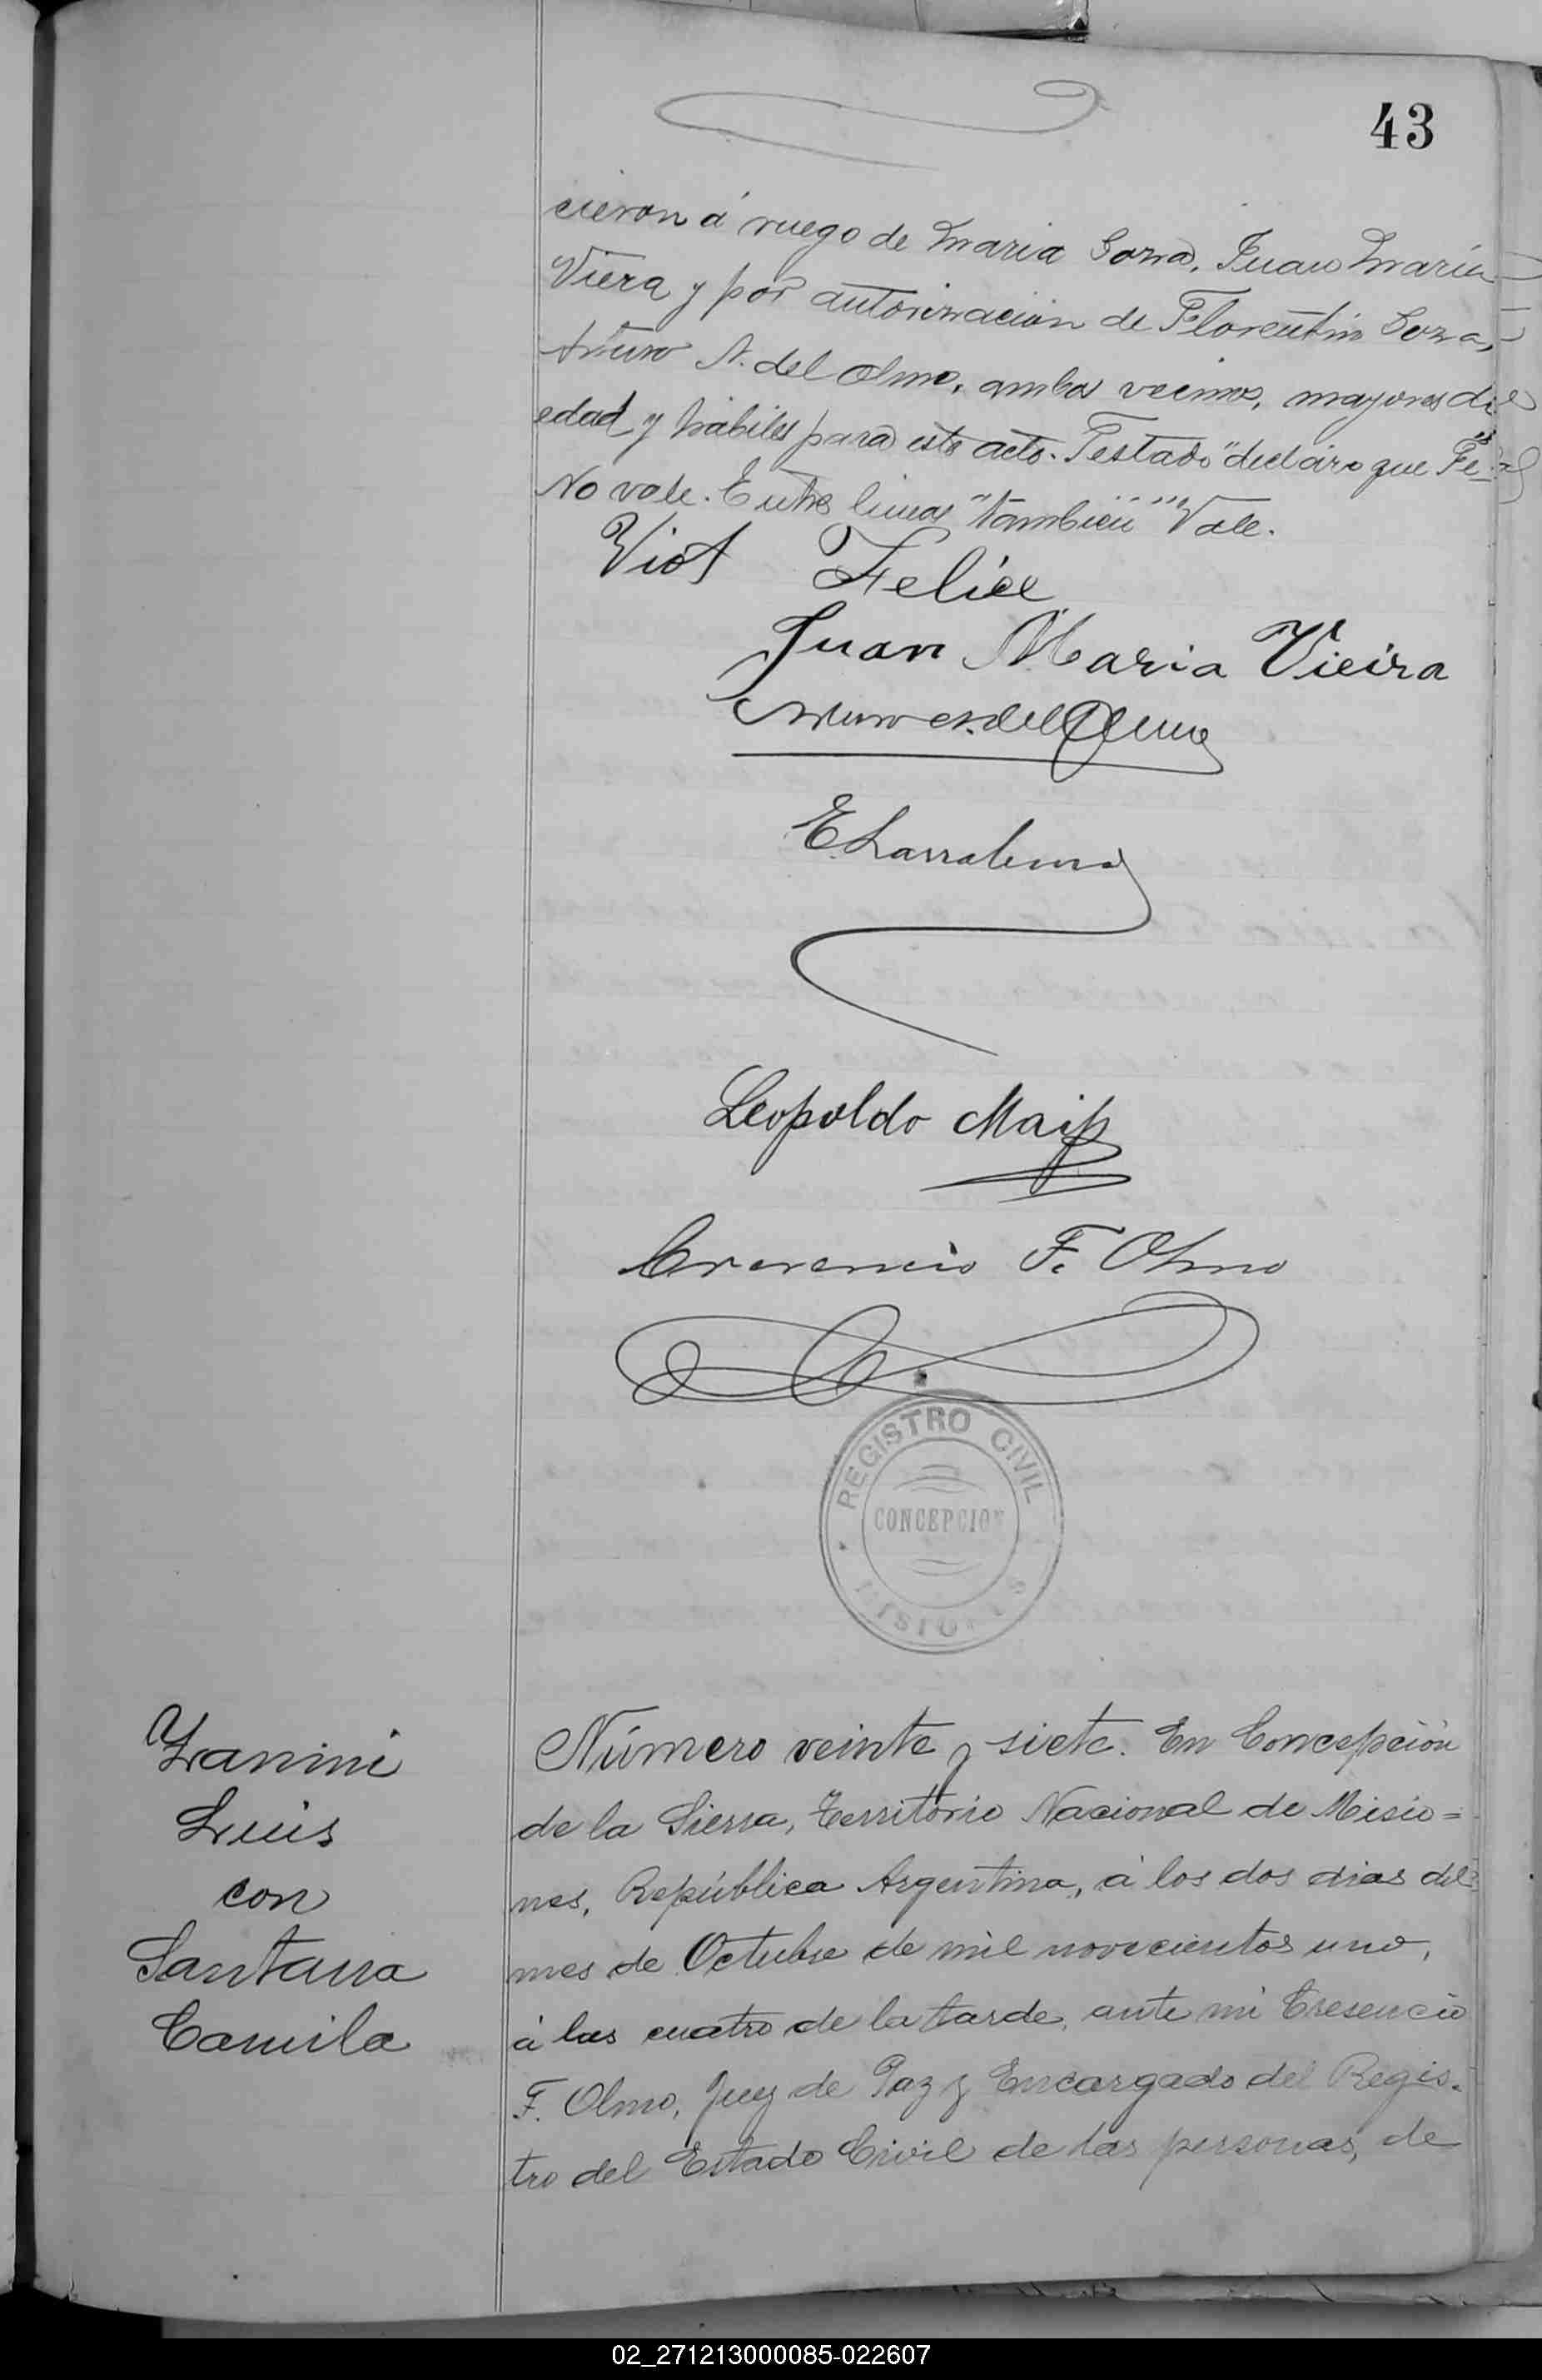 43
cieron á ruego de Maria Soza, Juan María
Viera y por autorizacion de Florentin Soza,
Arturo N. del Olmo, ambos vecinos, mayores de
edad y hábiles para este acto. Testado "declaro que Fe"
No vale. Entre lineas "tambien" Vale.
Viot Felice
Juan Maria Vieira
Arturo N. del Olmo
E. Larralem
Leopoldo
Cresencio F. Olmo
REGISTRO CIVIL
CONCEPCION
MISIONES
Zanini
Luis
con
Santana
Camila
Número veinte y siete. En Concepción
de la Sierra, Territorio Nacional de Misio=
nes, República Argentina, á los dos dias del
mes de Octubre de mil novecientos uno,
á las cuatro de la tarde, ante mi Cresencio
F. Olmo, Juez de Paz y Encargado del Regis-
tro del Estado Civil de las personas, de
02_271213000085-022607